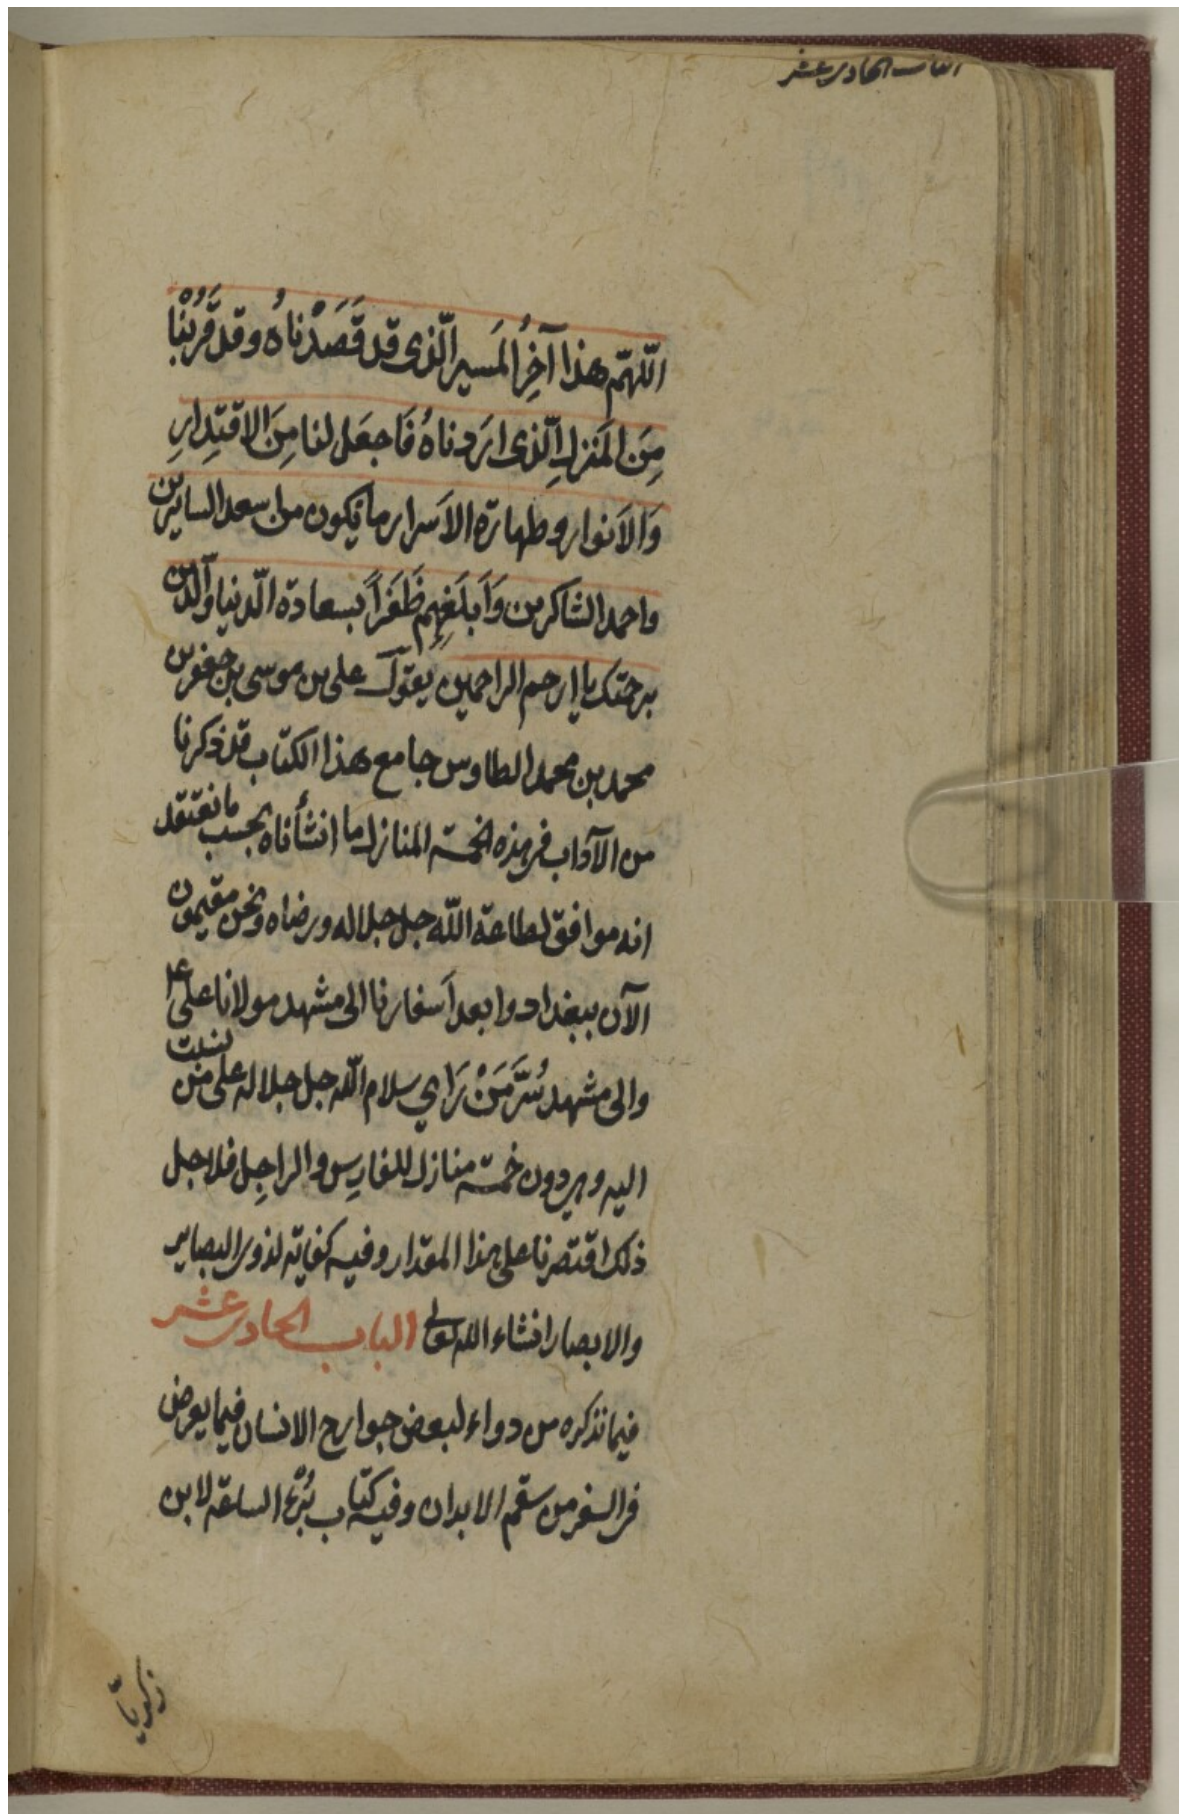 الباب الحادى عشر
اللّهمّ هذا آخِرُ المَسير الّذى قد قَصَدْناهُ وقد قَرُبْنا
مِنَ المَنزلِ الّذى اردناهُ فَاجعَل لنا مِنَ الاقتِدارِ
وَالاَنوار وطهارة الاَسرار ما نكون من اسعد السائرين
واحمد الشاكرين وَاَبلَغِهِم ظَفَراً بسعادة الدّنيا والدّين
برحمتك يا ارحم الراحمين يقول على بن موسى بن جعفر بن
محمد بن محمد الطاوس جامع هذا الكتاب قد ذكرنا
من الآداب فى هذه الخمسة المنازل ما انشأناه بحسب ما نعتقد
انه موافق لطاعة الله جل جلاله ورضاه ونحن مقيمون
الآن ببغداد وابعد اَسفارنا الى مشهد مولانا على ع
والى مشهد سُرَّ مَنْ رَاى سلام الله جل جلاله على من نسبت
اليه وهى دون خمسة منازل للفارِس والراجِل فلاجل
ذلك اقتصرنا على هذا المقدار وفيه كفاية لذوى البصاير
والابصار انشاء الله تعالى الباب الحادى عشر
فيما نذكره من دواء لبعض جوارح الانسان فيما يعرض
فى السفر من سقم الابدان وفيه كتاب بُرْء الساعة لابن
زكريّا